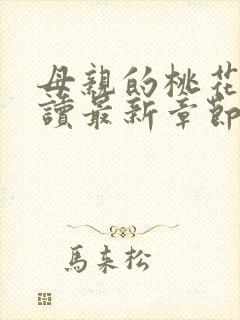 母親的桃花
讀最新章節
馬來松